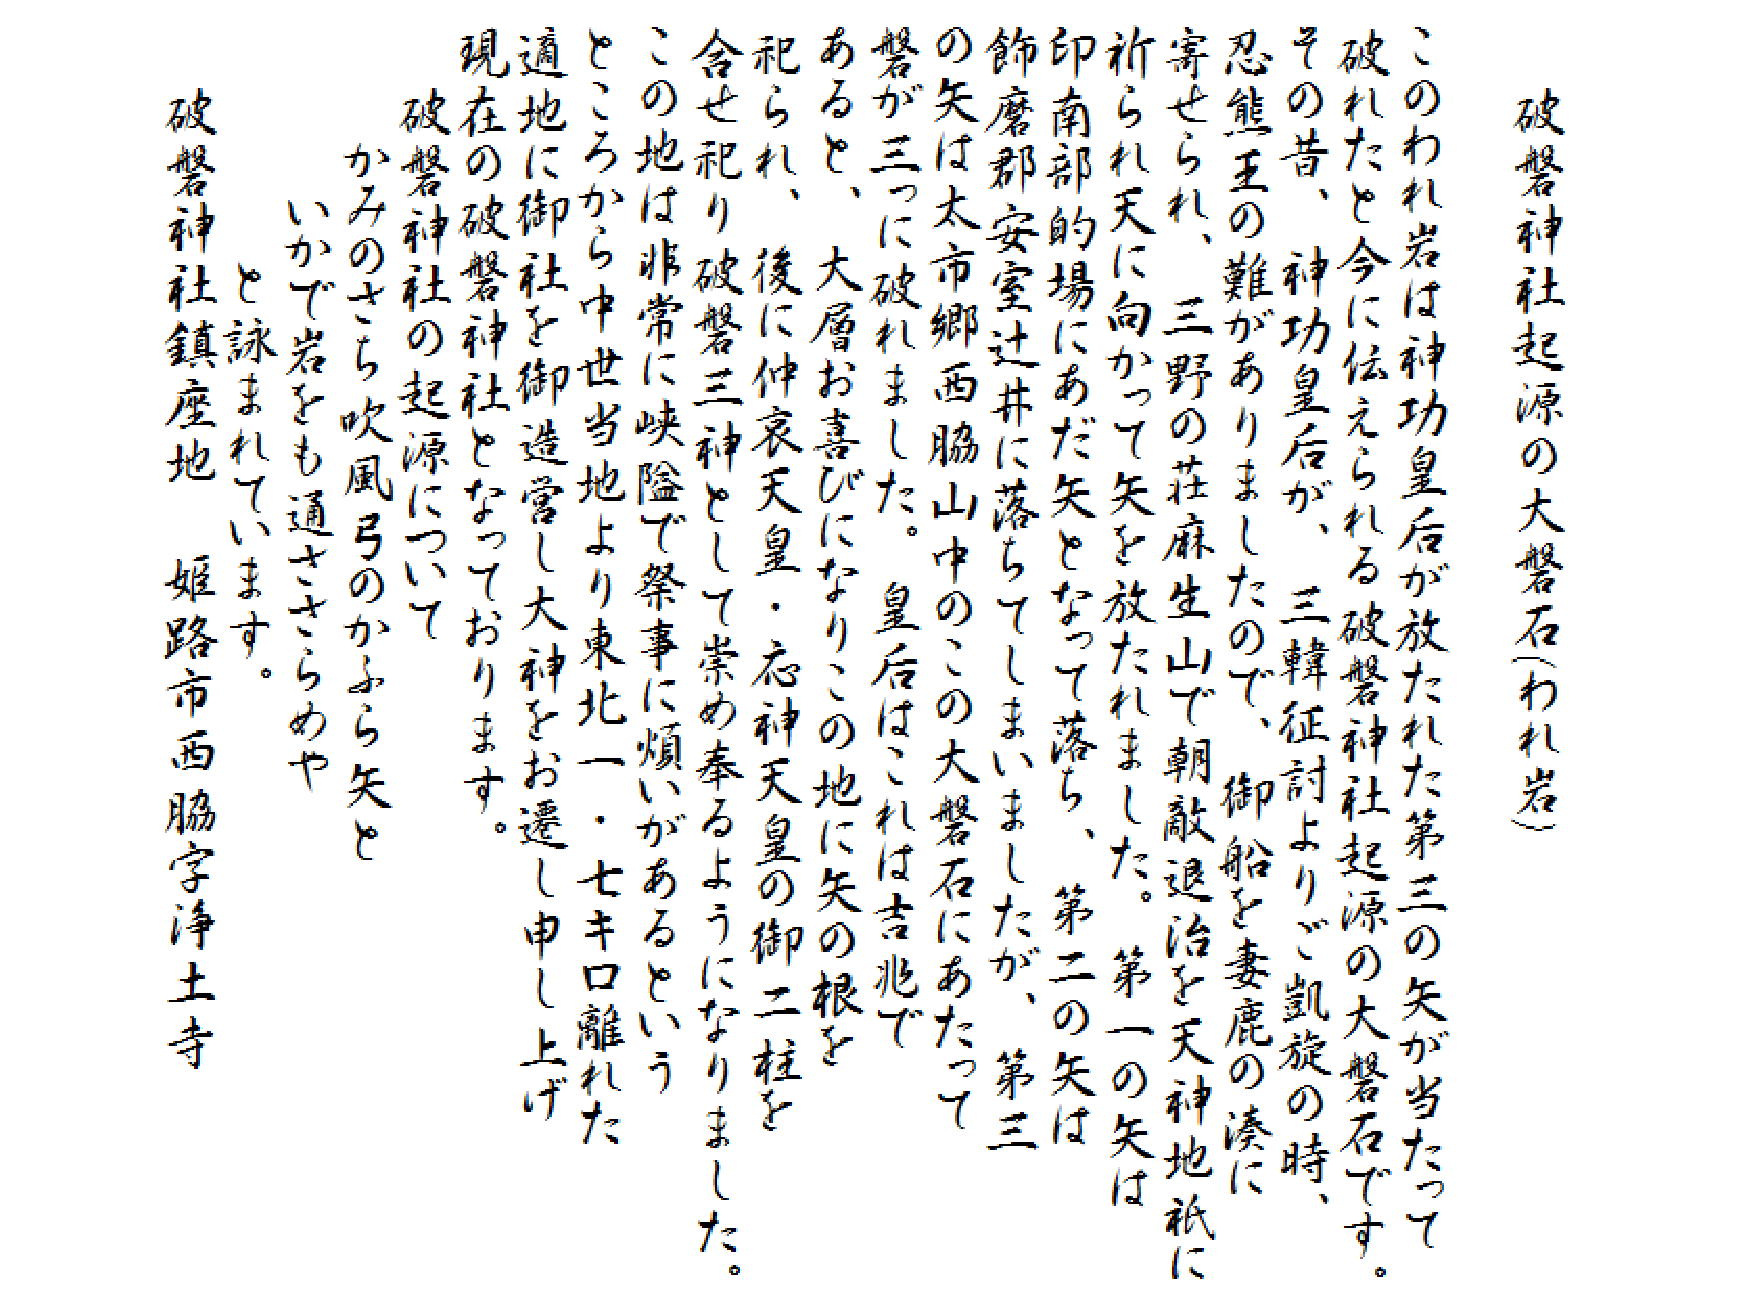 破磐神社起源の大磐石(われ岩)
このわれ岩は神功皇后が放たれた第三の矢が当たって
破れたと今に伝えられる破磐神社起源の大磐石です。
その昔、神功皇后が、三韓征討よりご凱旋の時、
忍熊王の難がありましたので、御船を妻鹿の湊に
寄せられ、三野の荘麻生山で朝敵退治を天神地祇に
祈られ天に向かって矢を放たれました。第一の矢は
印南部的場にあだ矢となって落ち、第二の矢は
飾磨郡安室辻井に落ちてしまいましたが、第三
の矢は太市郷西脇山中のこの大磐石にあたって
磐が三つに破れました。皇后はこれは吉兆で
あると、大層お喜びになりこの地に矢の根を
祀られ、後に仲哀天皇・応神天皇の御二柱を
合せ祀り破磐三神として崇め奉るようになりました。
この地は非常に峡隘で祭事に煩いがあるという
ところから中世当地より東北一・七キロ離れた
適地に御社を御造営し大神をお遷し申し上げ
現在の破磐神社となっております。
破磐神社の起源について
かみのさち吹風弓のかぶら矢と
いかで岩をも通さざらめや
と詠まれています。
破磐神社鎮座地 姫路市西脇字浄土寺